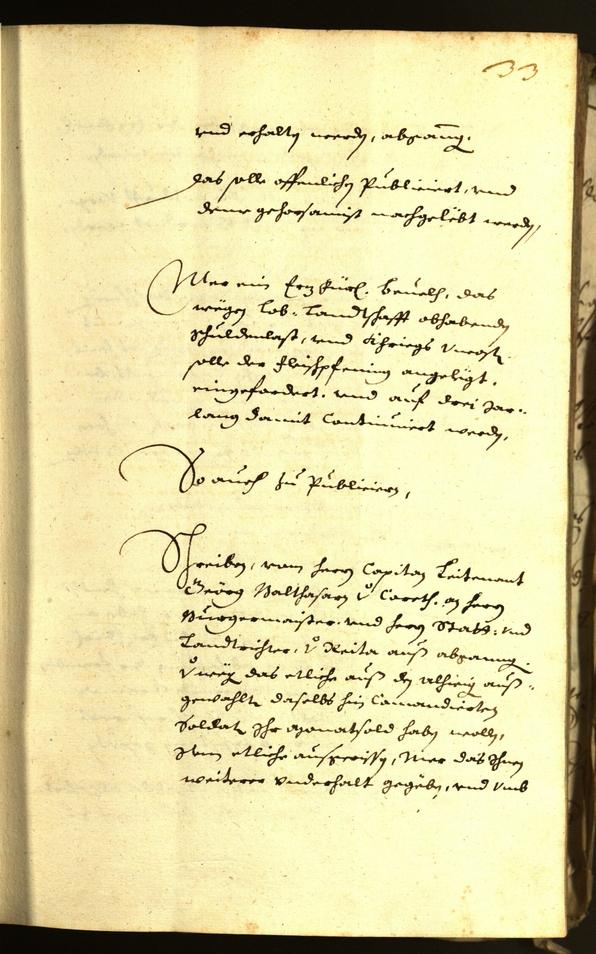 33
vnd erhalten werden, abgang.
das solle offenlichen Publiciert, vnd
deme gehorsamist nachgelebt werden,
Mer ein Erz Fürl. beuelch, das
wegen Lob: Landtschafft obhabenden
schuldenlast, vnd Khriegs
solle der fleischpfening angelegt,
eingefordert. vnd auf drei Jar
lang damit Continuiert werden,
So auch zu Publicieren,
Schreiben, vom herrn Capitan Leitenant
Georg Balthasarn v Coreth. an herrn
Burgermaister. vnd herrn Statt: vnd
Landtrichter. v auß
das etliche auß den alhieig auß=
gewohlten daselbs hin Comandierten
Soldaten Ihr monatsold haben wollen,
etliche außgerissen, Mer das Ihnen
weiterer vnderhalt gegeben, vnd vmb